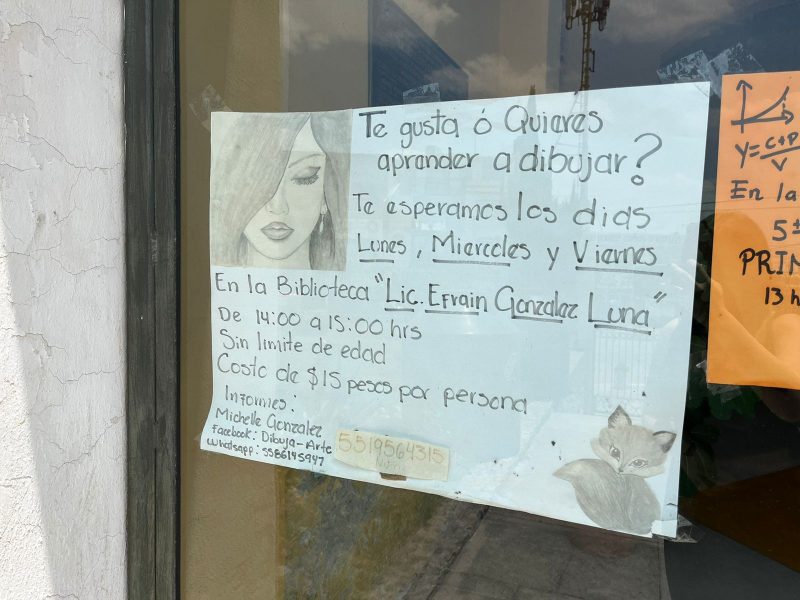 Te gusta ó Quieres
aprender a dibujar?
Te esperamos los dias
Lunes, Miercoles y Viernes
En la Biblioteca "Lic. Efrain Gonzalez Luna"
De 14:00 a 15:00 hrs
Sin limite de edad
Costo de $15 pesos por persona
Informes:
Michelle Gonzalez
Facebook: Dibuja-Arte
Whatsapp: 5586145947
5519564315
Y=C+P
V
En la
5±
PRIM
13 h